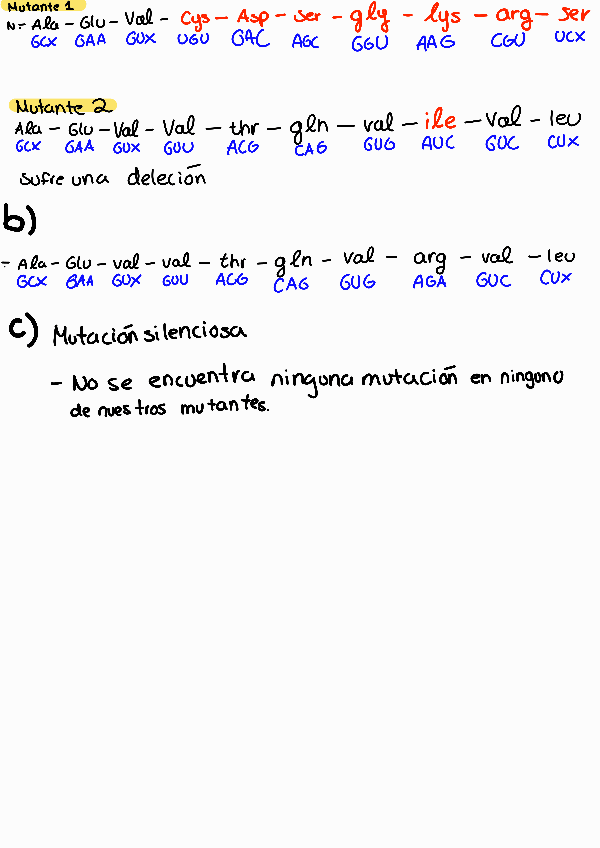 Mutante 1
N- Ala - Glu - Val - Cys - Asp - ser - gly - lys - arg - ser
GCX GAA GUX UGU GAC AGC GGU AAG CGU UCX
Mutante 2
Ala - Glu - Val - Val - thr - gln - val - ile - Val - leu
GCX GAA GUX GUU ACG CAG GUG AUC GUC CUX
Sufre una deleción
b)
- Ala - Glu - val - val - thr - gln - val - arg - val - leu
GCX GAA GUX GUU ACG CAG GUG AGA GUC CUX
c) Mutación silenciosa
- No se encuentra ninguna mutación en ninguno
de nuestros mutantes.